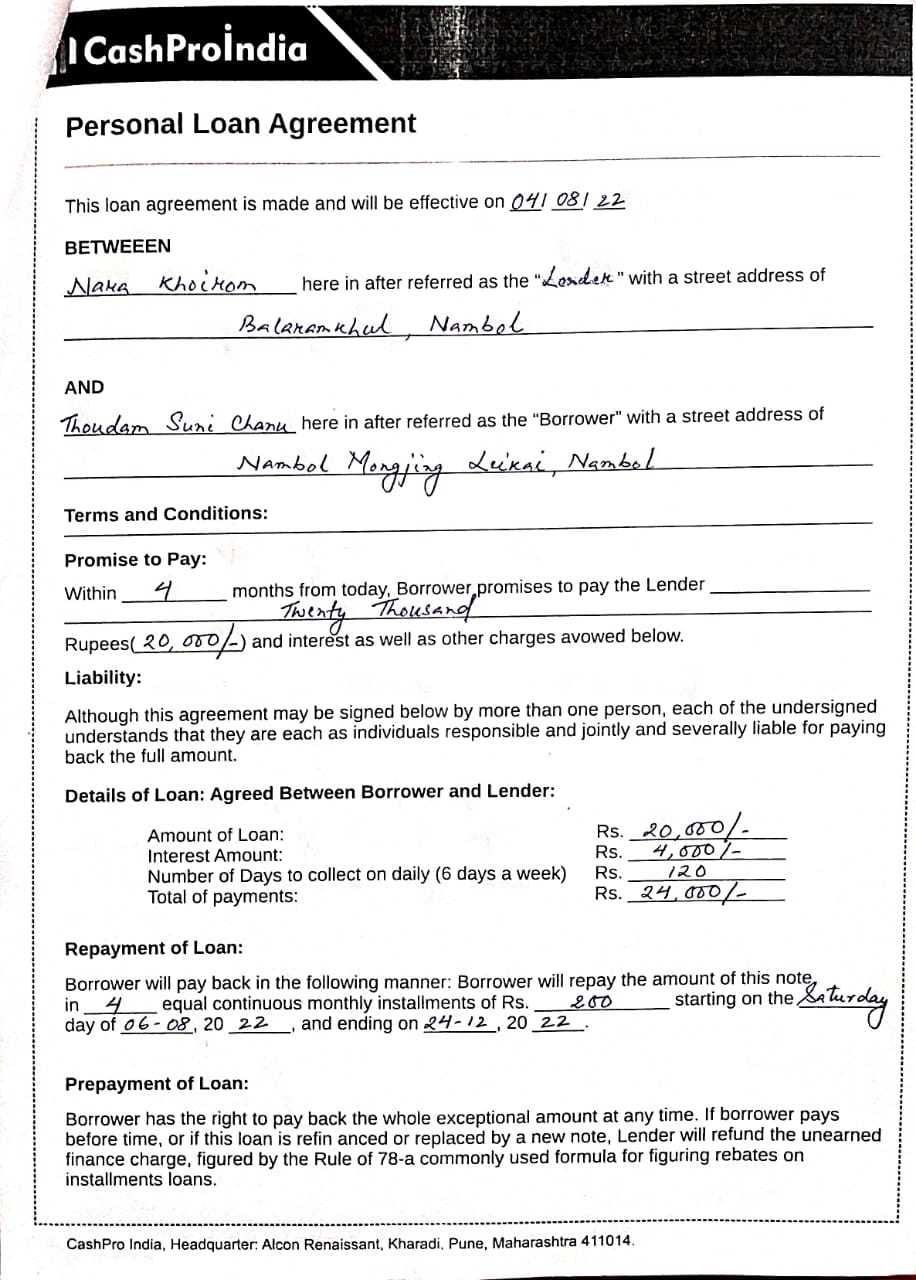 CashProİndia
Personal Loan Agreement
This loan agreement is made and will be effective on 04/ 08/ 22
BETWEEEN
Nara Khoirom here in after referred as the "Lender" with a street address of
Balaramkhul, Nambol
AND
Thoudam Suni Chanu here in after referred as the “Borrower” with a street address of
Nambol Mongjing Leikai, Nambol
Terms and Conditions:
Promise to Pay:
Within 4 months from today, Borrower promises to pay the Lender
Twenty Thousand
Rupees( 20,000/-) and interest as well as other charges avowed below.
Liability:
Although this agreement may be signed below by more than one person, each of the undersigned
understands that they are each as individuals responsible and jointly and severally liable for paying
back the full amount.
Details of Loan: Agreed Between Borrower and Lender:
Amount of Loan: Rs. 20,000/-
Interest Amount: Rs. 4,000/-
Number of Days to collect on daily (6 days a week) Rs. 120
Total of payments: Rs. 24,000/-
Repayment of Loan:
Borrower will pay back in the following manner: Borrower will repay the amount of this note
in 4 equal continuous monthly installments of Rs. 200 starting on the Saturday
day of 06-08, 20 22, and ending on 24-12, 20 22.
Prepayment of Loan:
Borrower has the right to pay back the whole exceptional amount at any time. If borrower pays
before time, or if this loan is refin anced or replaced by a new note, Lender will refund the unearned
finance charge, figured by the Rule of 78-a commonly used formula for figuring rebates on
installments loans.
CashPro India, Headquarter: Alcon Renaissant, Kharadi, Pune, Maharashtra 411014.